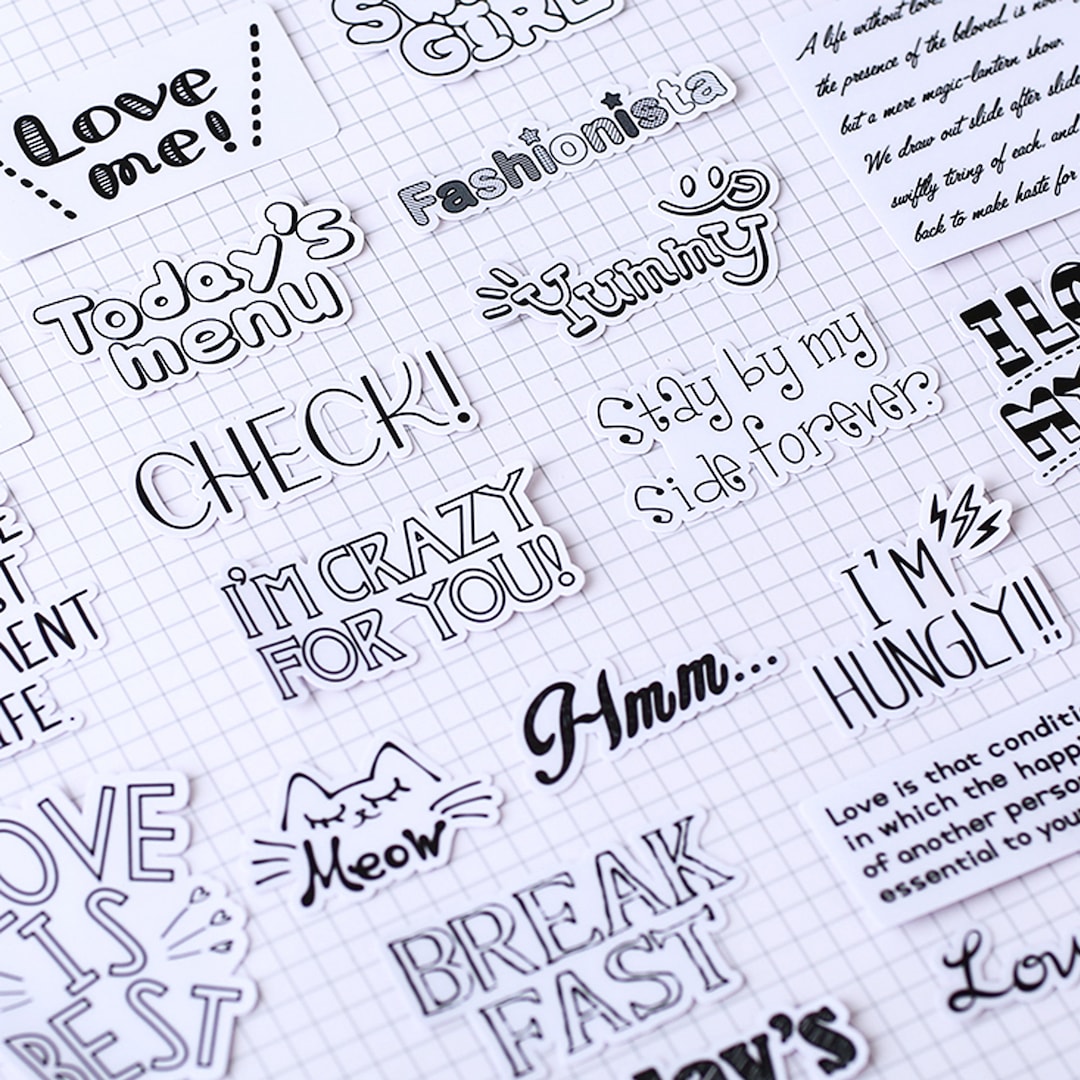 GIRL
Love
me!
Fashionista
A life without love,
the presence of the beloved, is
but a mere magic-lantern show.
We draw out slide after slide
swiftly tiring of each, and
back to make haste for
Today's
menu
Yummy
I LO
MY
CHECK!
Stay by my
side forever.
I'M CRAZY
FOR YOU!
I'M
HUNGLY!!
MENT
IFE.
Hmm...
Meow
Love is that conditi
in which the happ
of another perso
essential to you
OVE
IS
BEST
BREAK
FAST
Lov
ay's